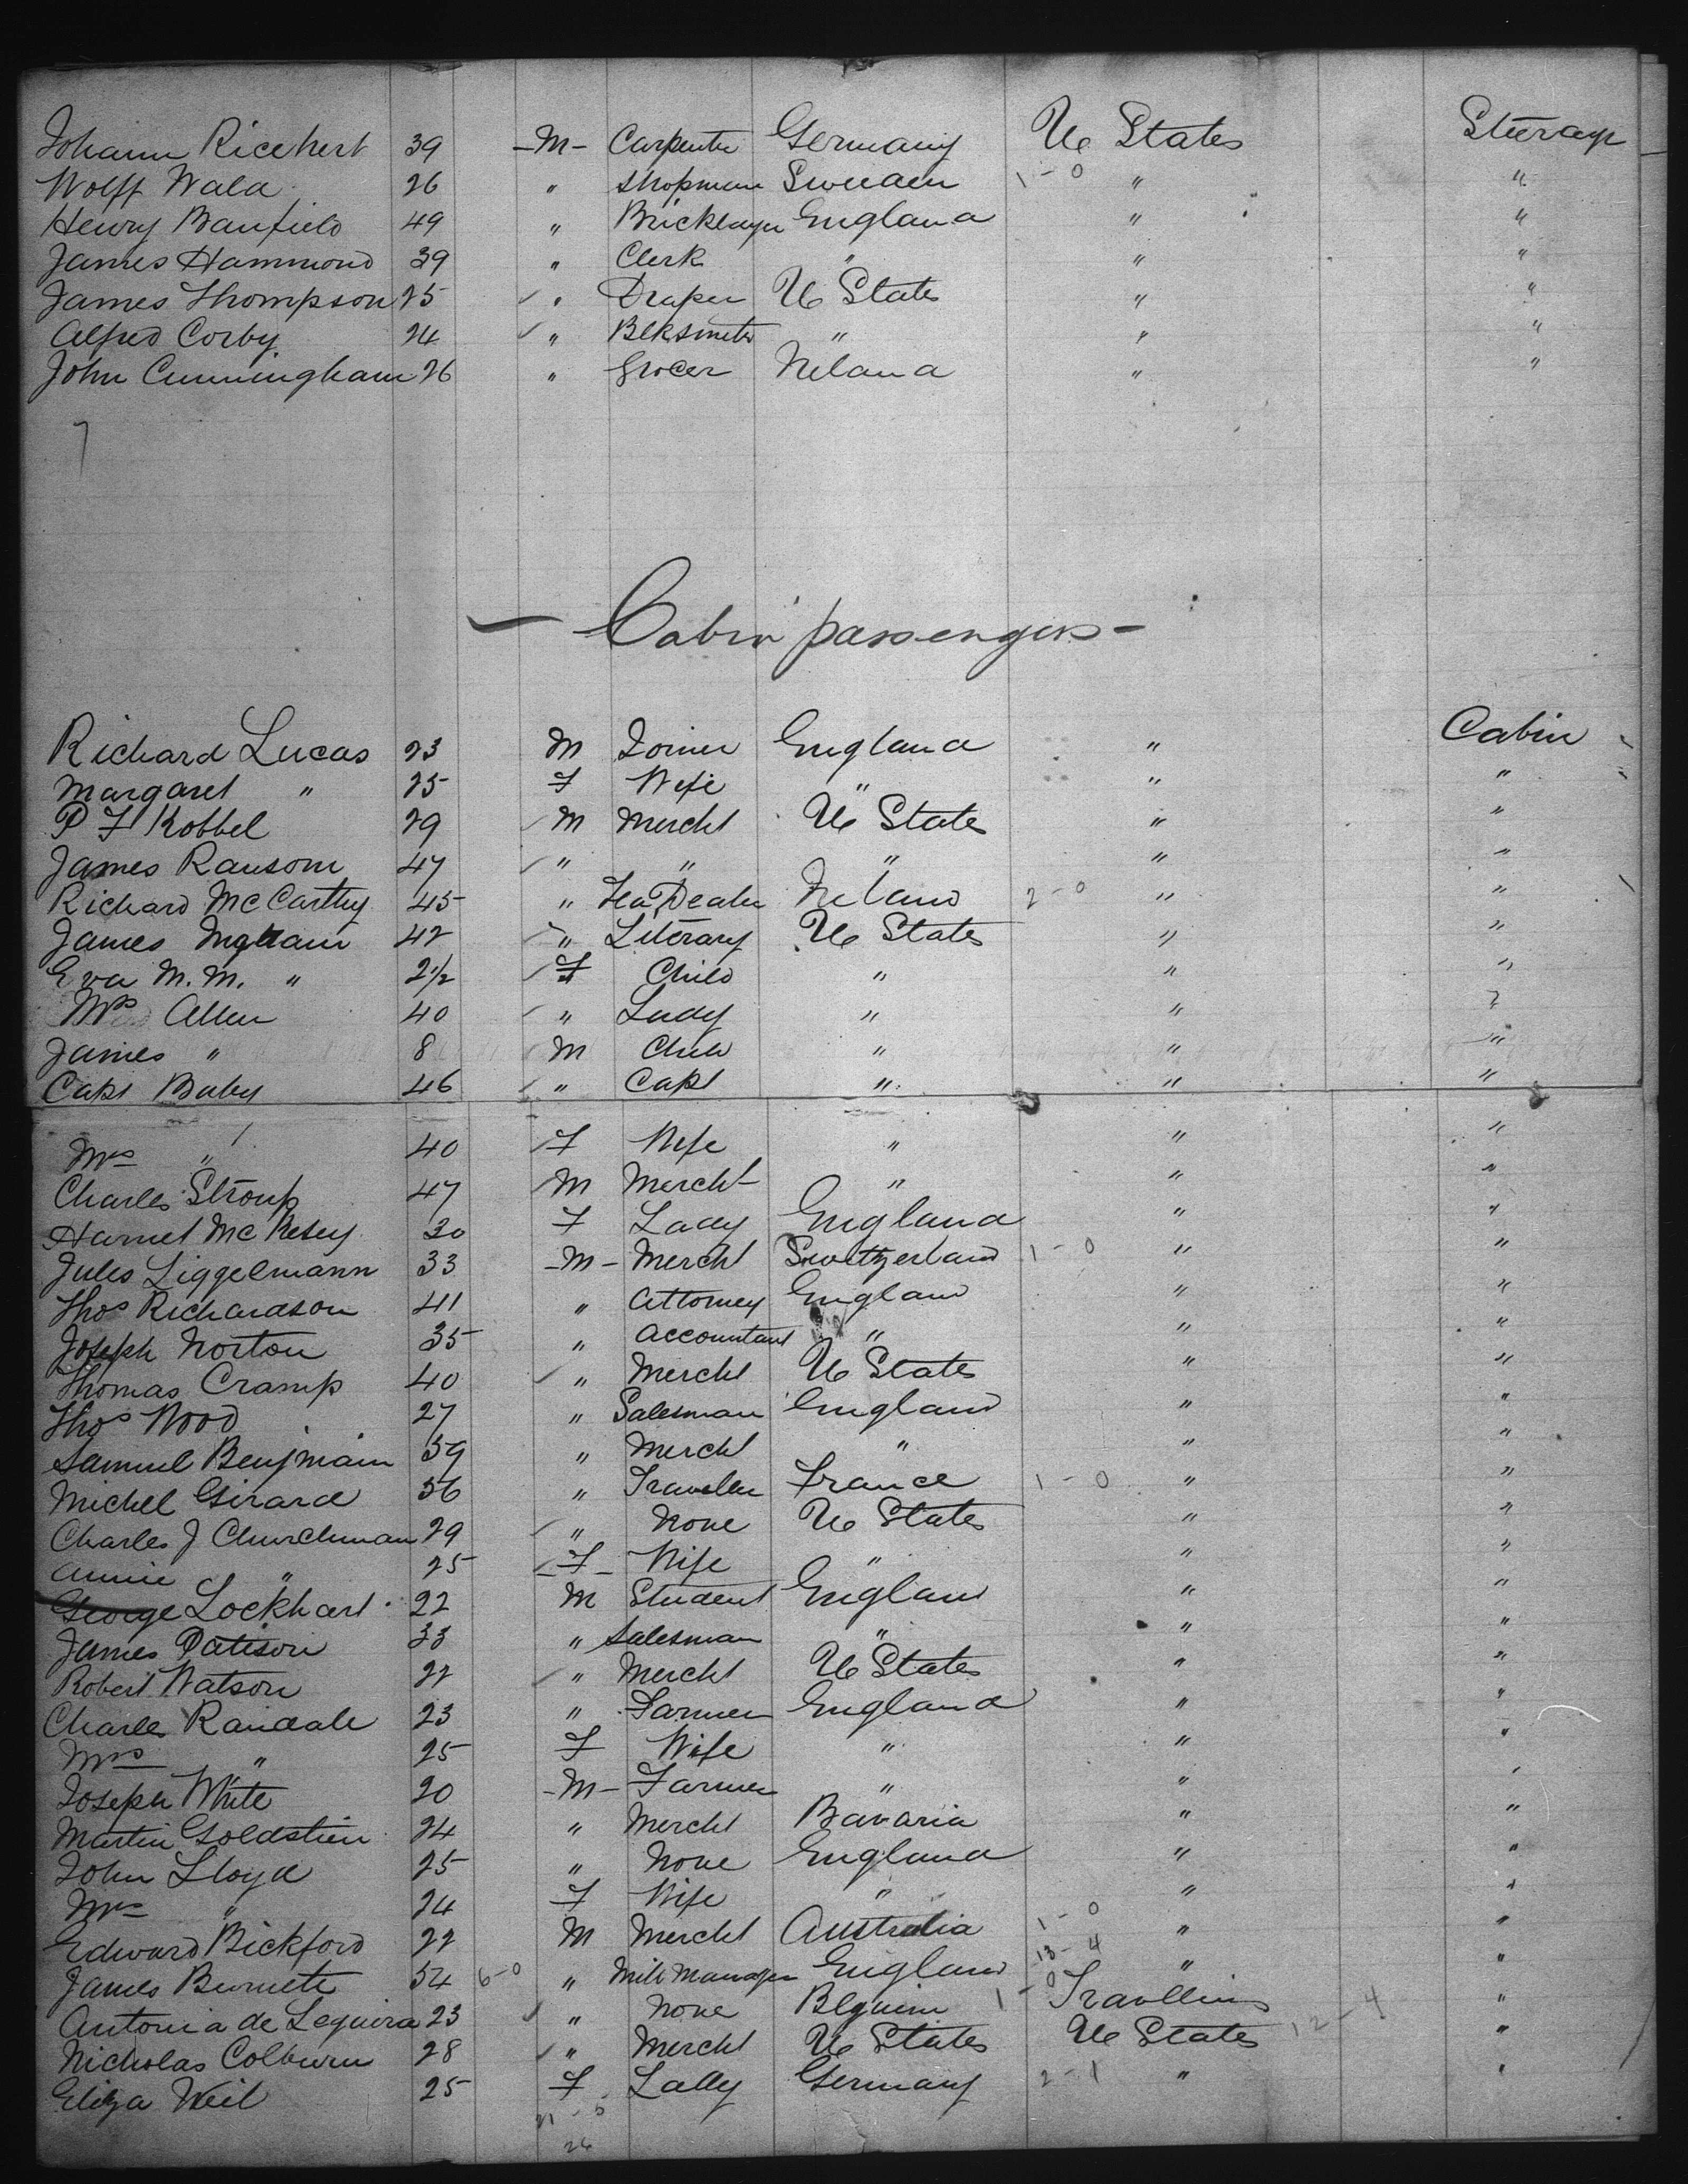 Johann Ricehert 39 -M- Carpenter Germany U States Steerage
Wolff Wala 26 " Shopman Sweden 1-0 " "
Henry Banfield 49 " Bricklayer England " "
James Hammond 39 " Clerk " " "
James Thompson 25 " Draper U States " "
Alfred Corby 24 " Blksmith " " "
John Cunningham 26 " Grocer Ireland " "
7
- Cabin passengers -
Richard Lucas 23 M Joiner England " Cabin
Margaret " 25 F Wife " " "
P F Kobbel 29 M Mercht U States " "
James Ransom 47 " " " " "
Richard McCarthy 45 " Tea Dealer Ireland 2-0 " "
James Ingham 42 " Literary U States " "
Eva M. M. " 2½ F Child " " "
Mrs Allen 40 " Lady " " "
James " 8 M Child " " "
Capt Baby 46 " Capt " " "
Mrs " 40 F Wife " " "
Charles Stroup 47 M Mercht " " "
Harriet Mc 30 F Lady England " "
Jules Liggelmann 33 -M- Mercht Switzerland 1-0 " "
Thos Richardson 41 " Attorney England " "
Joseph Norton 35 " Accountant " " "
Thomas Cramp 40 " Mercht U States " "
Thos Wood 27 " Salesman England " "
Samuel Benjmain 59 " Mercht " " "
Michel Girard 56 " Traveller France 1-0 " "
Charles J Churchman 29 " None U States " "
Annie " 25 F Wife " " "
George Lockhart 22 M Student England " "
James Pattison 33 " Salesman " " "
Robert Watson 22 " Mercht U States " "
Charles Randale 23 " Farmer England " "
Mrs " 25 F Wife " " "
Joseph White 20 -M- Farmer " " "
Martin Goldstien 24 " Mercht Bavaria " "
John Lloyd 25 " None England " "
Mrs " 24 F Wife " " "
Edward Bickford 22 M Mercht Australia 1-0 " "
James Burnett 54 6-0 " Mill Manager England 13-4 " "
Antonia de Lequira 23 " None Blguim 1-0 Travelling "
Nicholas Colburn 28 " Mercht U States U States 12-4 "
Eliza Weil 25 F Lady Germany 2-1 " "
26